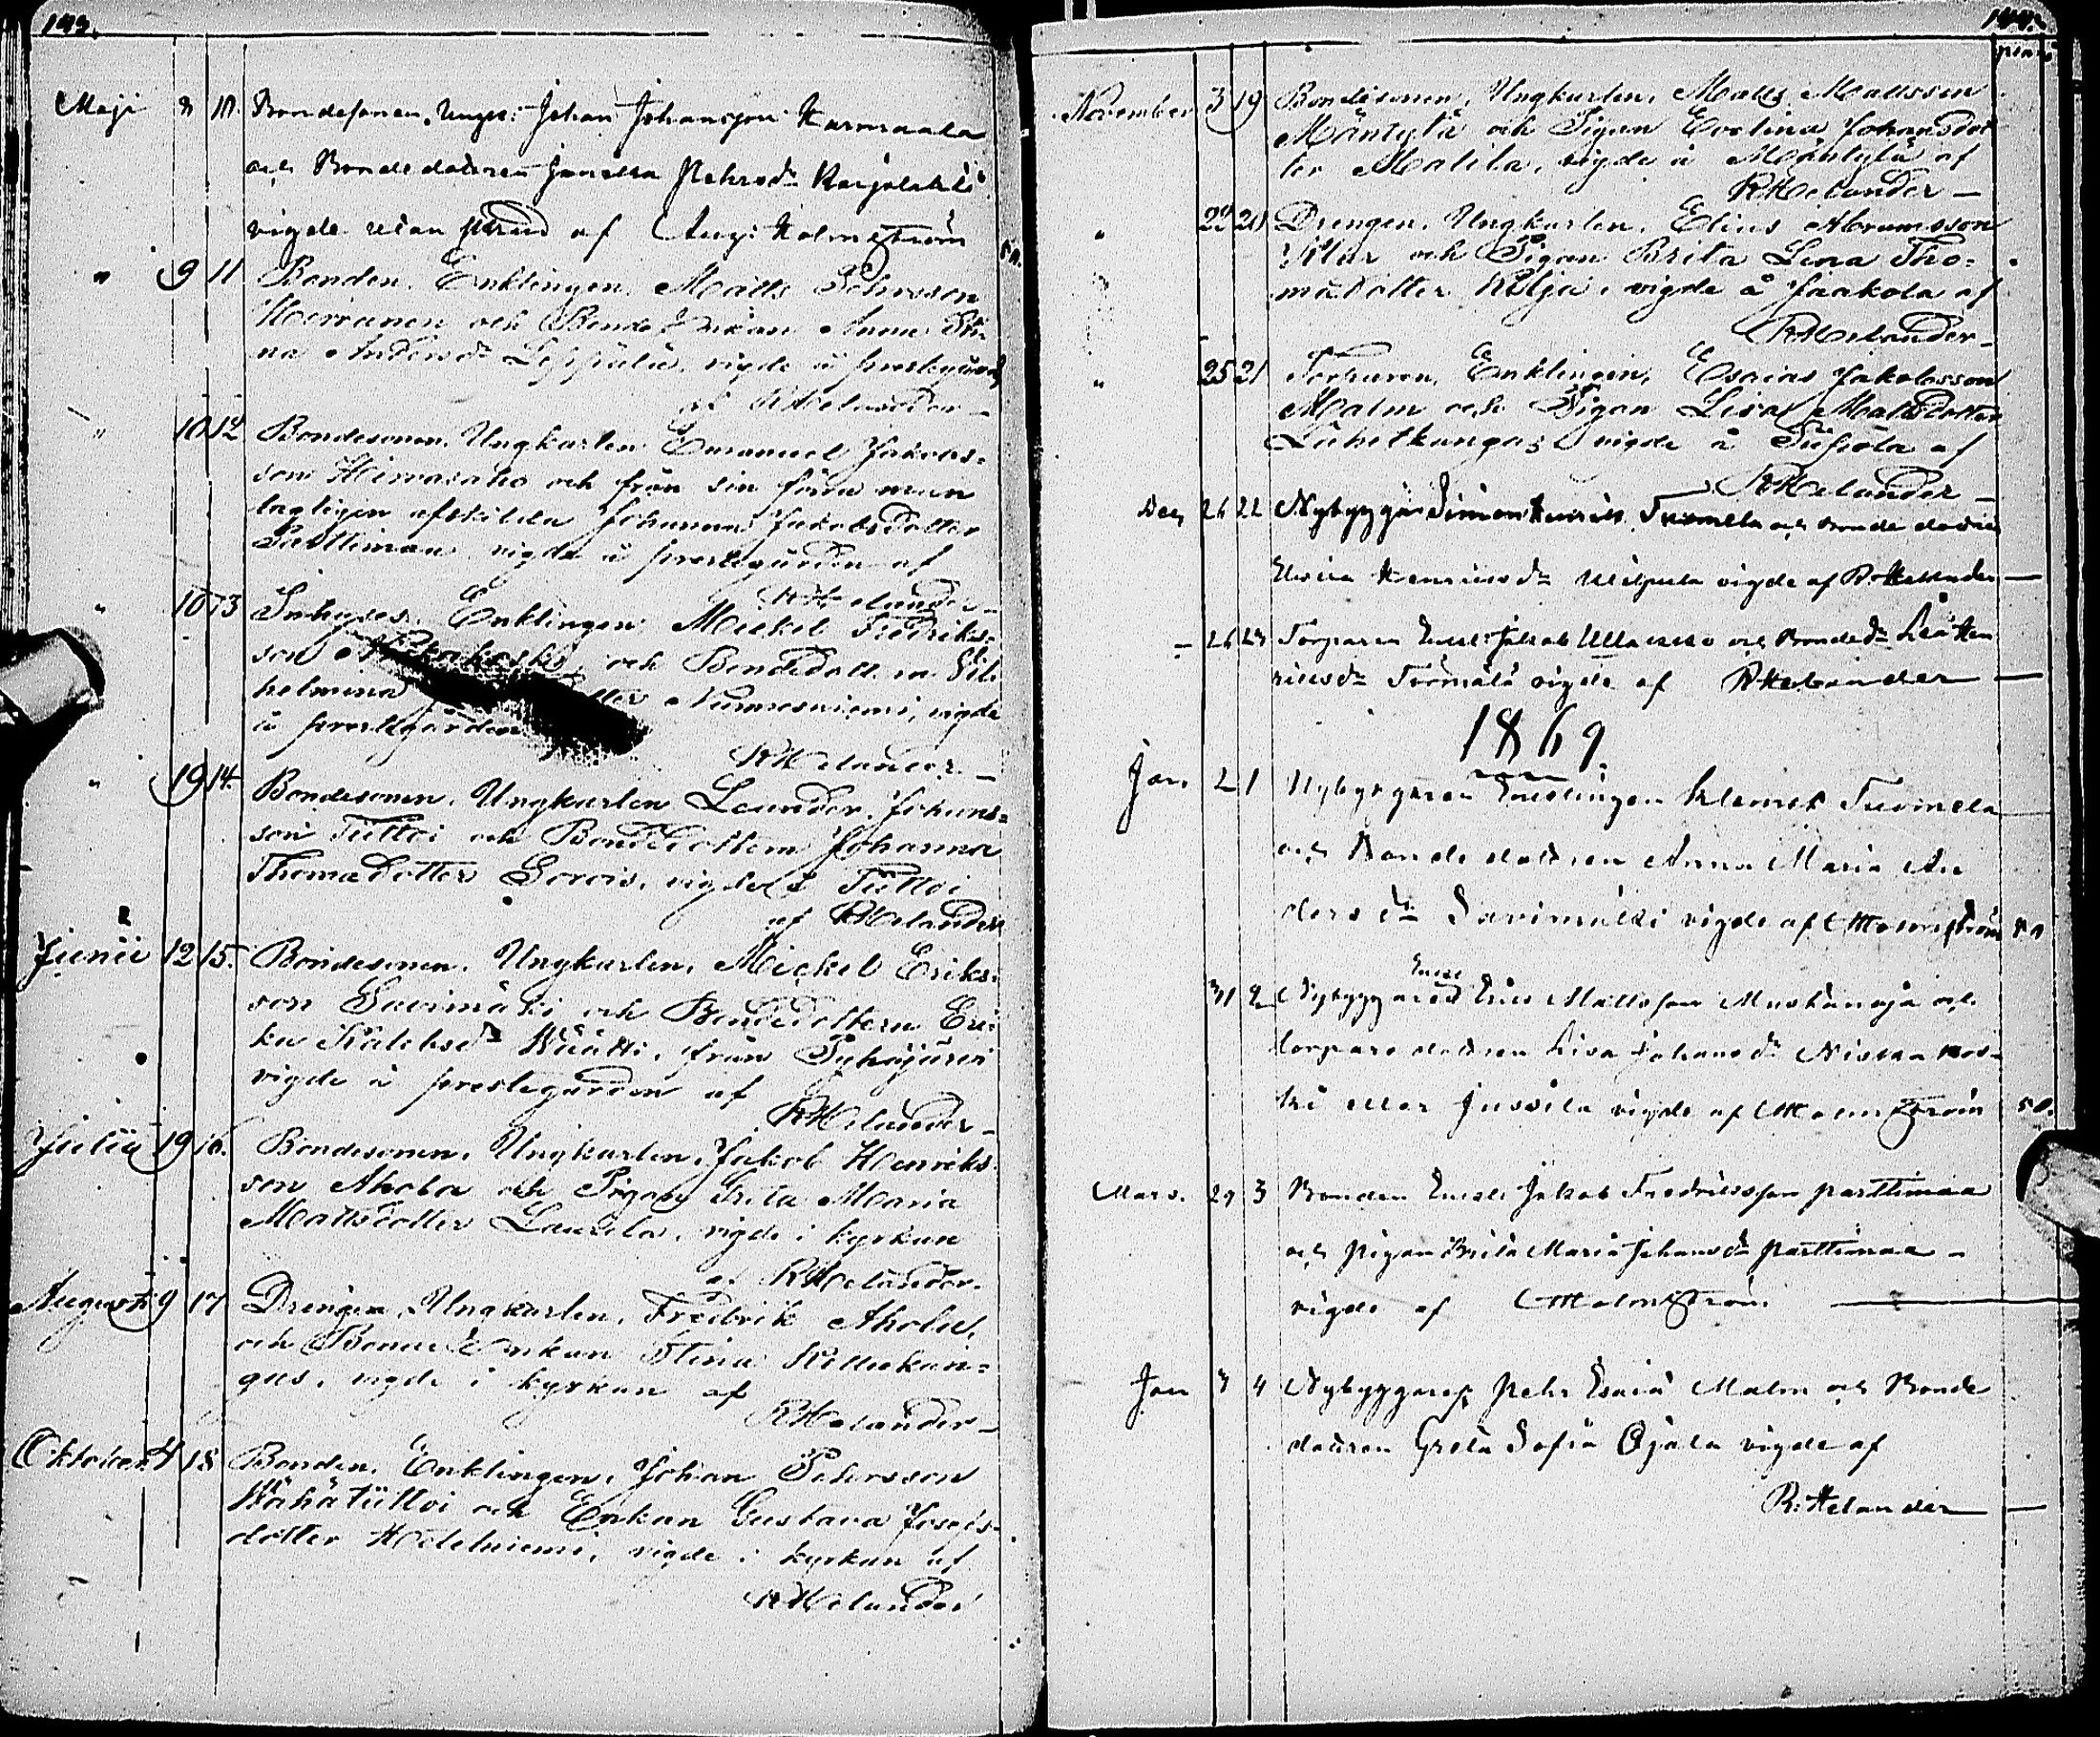 143.
Maji 3 10. Bondesonen, Ungk: Johan Johansson Karmaala
och Bonde dottren Pehrsdr Karjalahti
vigde utan skrud af Aug: Holmström
" 9 11 Bonden, Enklingen, Matts Pehrsson
Hirvanen och Bonde Enkan Anna Sti-
na Andersdr Leppälä, vigde å prestgård
af RHelander
" 10 12 Bondesonen, Ungkarlen Emanuel Jakobs-
son Hirvasaho och från sin förra man
lagligen afskilda Johanna Jakobsdotter
Parttimaa vigde å prestegården af
RHelander
" 10 13 Inhyses, Enklingen Mickel Fredriks-
son och Bondedott. Vil-
helmina Nurmesniemi, vigde
å prestgården
RHelander
" 19 14. Bondesonen, Ungkarlen Leander Johans-
son Tüttoi och Bondedottern Johanna
Thomasdotter Sorvis, vigde å Tüttoi
af RHelander
Junii 12 15. Bondesonen, Ungkarlen, Mickel Eriks-
son Savimäki och Bondedottern Eri-
ka från Pyhäjärvi
vigde å prestegården af
RHelander
Julii 19 16. Bondesonen, Ungkarlen, Jakob Henriks-
son Ahola och Pigan Brita Maria
Mattsdotter Laurila, vigde i kyrkan
af RHelander
Augusti 9 17 Drengen, Ungkarlen, Fredrik Ahola,
och Bonde Enkan Stina
gas, vigde i kyrkan af
RHelander
Oktober 4 18 Bonden, Enklingen, Johan Pehrsson
Wähätüttoi och Enkan Gustava Josefs-
dotter vigde i kyrkan af
RHelander
144.
November 3 19 Bondesonen, Ungkarlen, Matts Mattsson
Mäntylä och Pigan Evelina Johansdot
ter Matila, vigde å Mäntylä af
RHelander
" 22 20 Drengen, Ungkarlen, Elias Abramsson
och Pigan Brita Lena Tho-
madotter Kilja, vigde å Jaakola af
RHelander
" 25 21 Torparen, Enklingen, Esaias Jakobsson
Malm och Pigan Lisa Mattsdotter
Lähetkangas, vigde å af
RHelander
Dec 26 22 Nybyggar Simon Henriks. Tuomela och Bonde dottren
Henriksdr vigde af R.Helander
– 26 23 Torparen Enkl: Jakob och Bondedr Lisa Hen
riksdr Tuomala vigde af RHelander
1869.
Jan. 2 1 Nybyggaren Enklingen Klemet Tuomela
och Bonde dottren Anna Maria An
dersdr Savimäki vigde af AHolmström 50
31 2 Nybyggaren Enkl Eric Mattsson Mustanoja och
torpare dottren Lisa Johansdr Niskakos-
ki eller Jussila vigde af AHolmström 50.
Mars. 29 3 Bonden Enkl: Jakob Fredriksson Parttimaa
och pigan Brita Maria Johansdr Parttimaa
vigde af AHolmström
Jan 3 4 Nybyggaren Pehr Esaias Malm och Bonde
dottren Greta Sofia Ojala vigde af
R:Helander